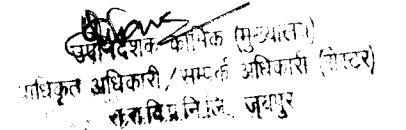 उपनिदेशक कार्मिक (मुख्यालय)
प्राधिकृत अधिकारी / सम्पर्क अधिकारी (रोस्टर)
रा.रा.वि.प्र.नि.लि. जयपुर